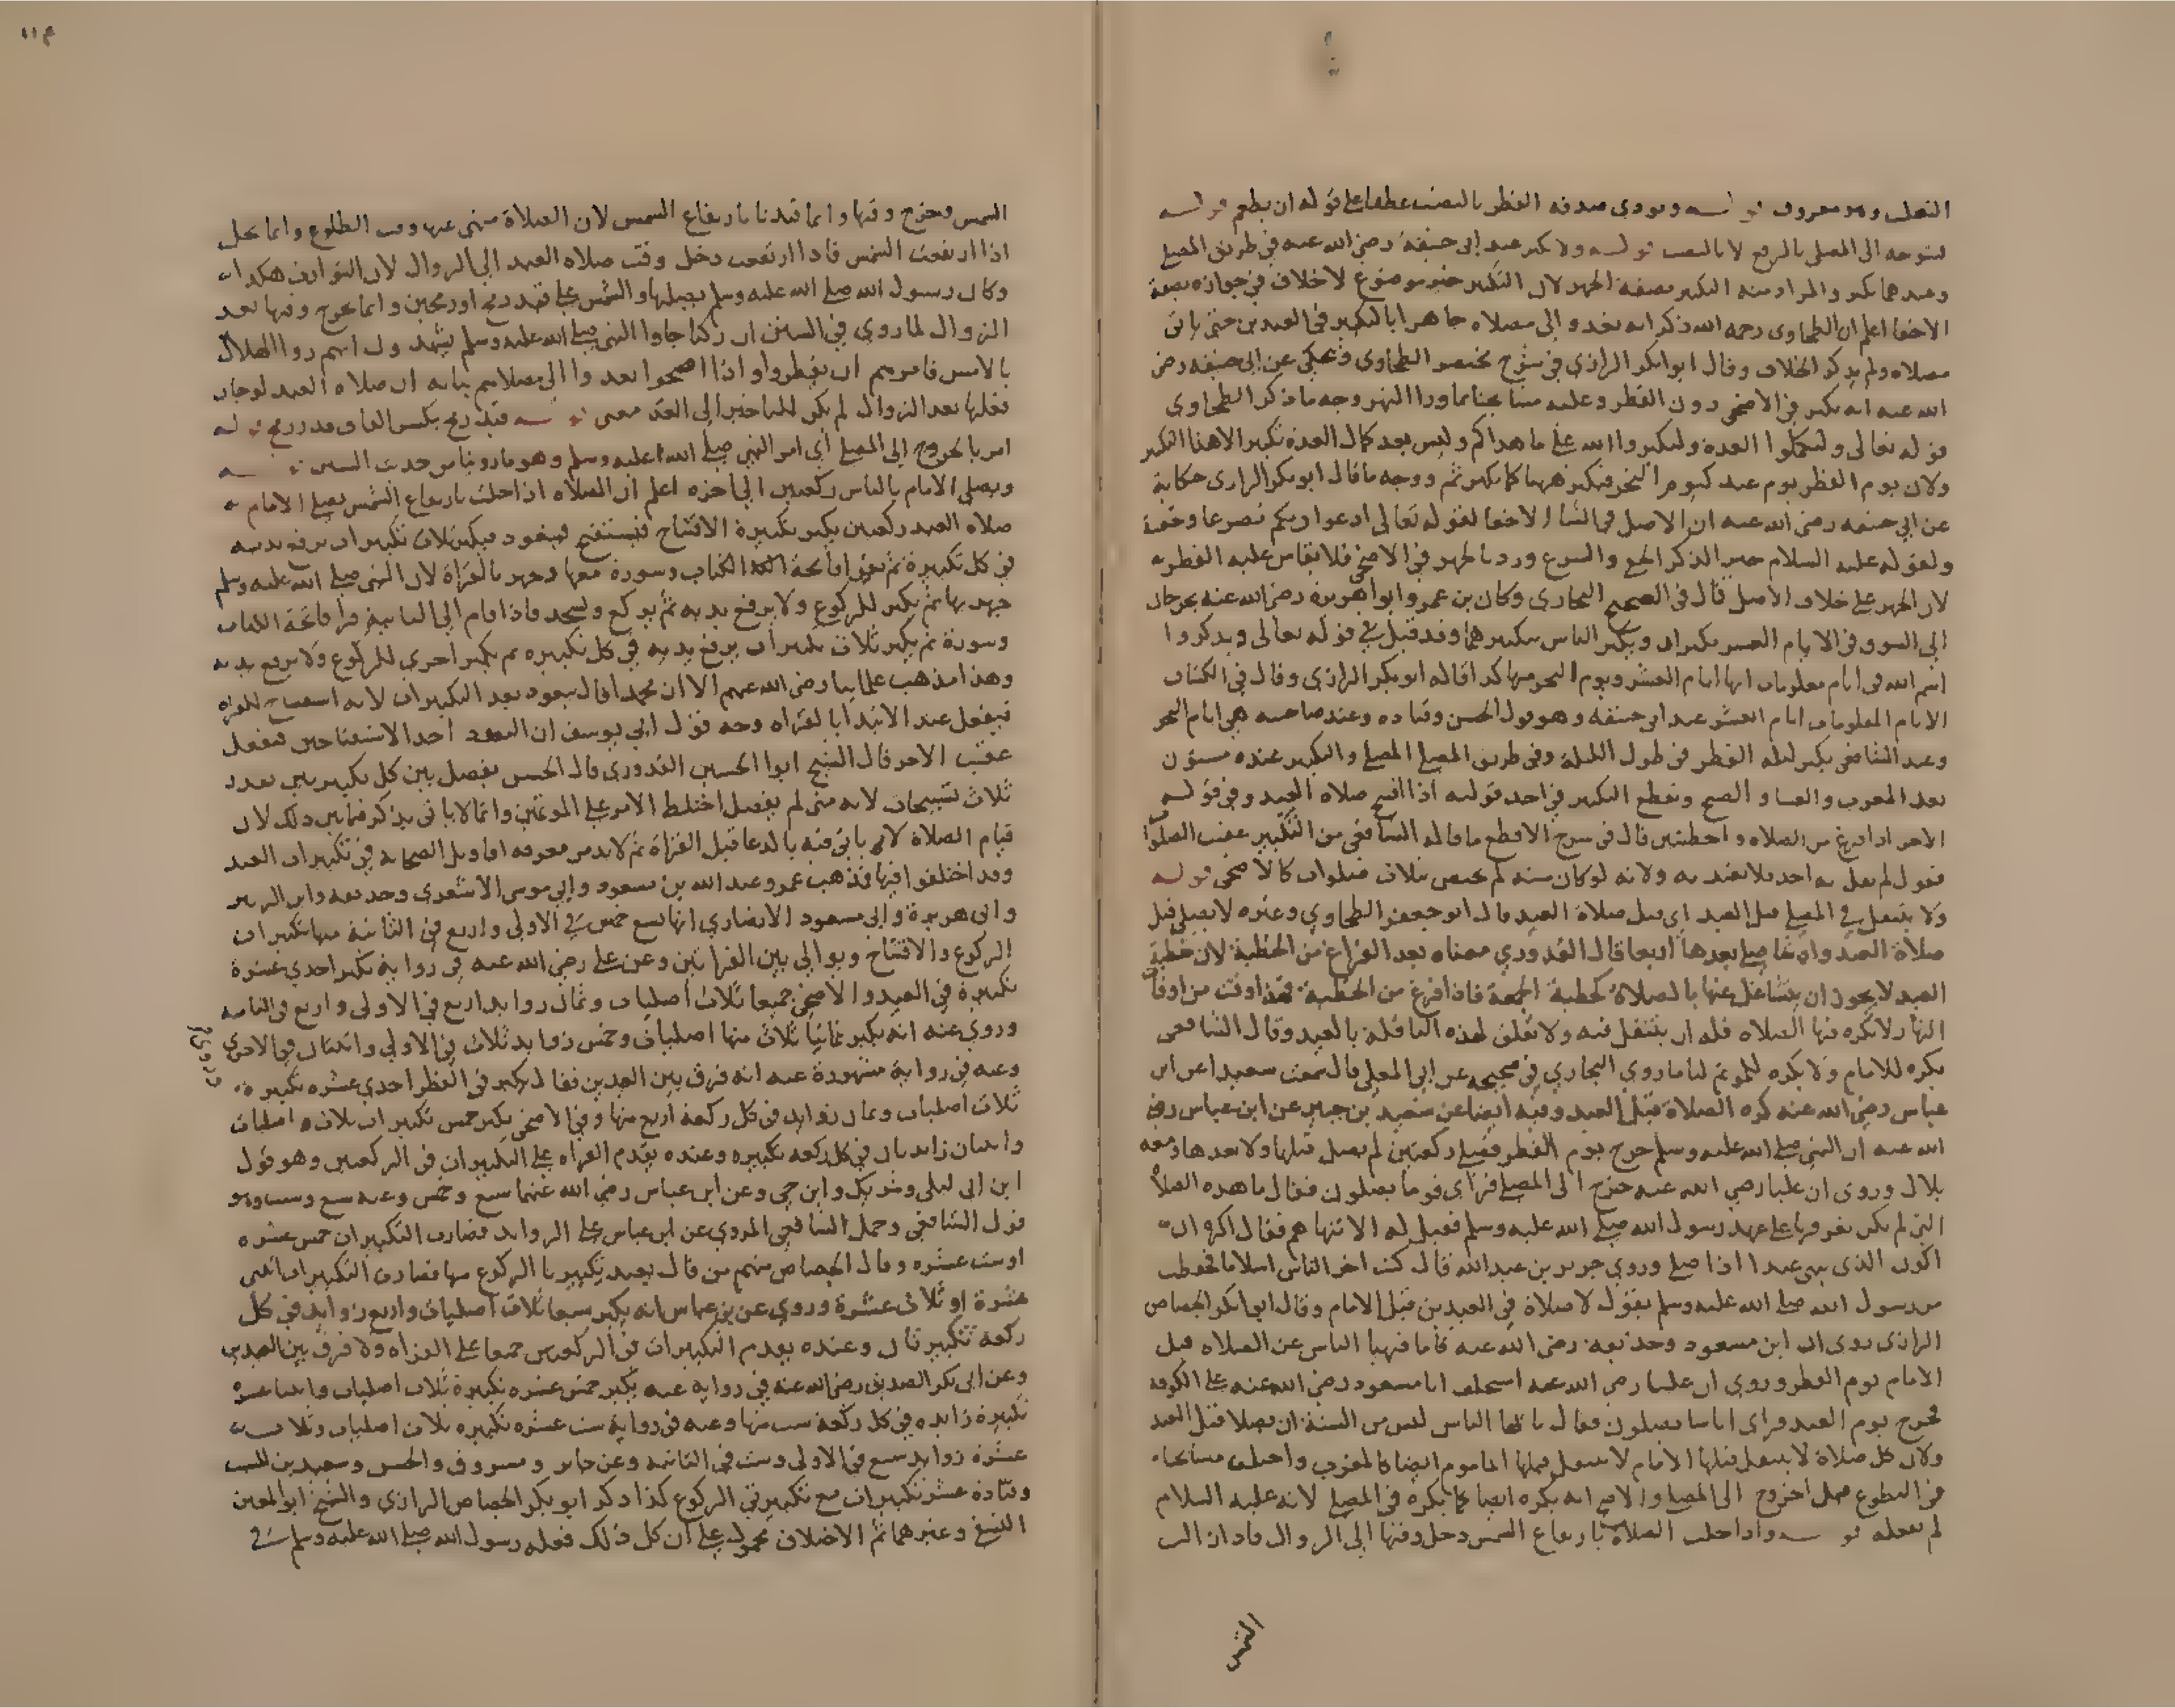 النعل وهو معروف قوله ويودى صدقه الفطر بالنصب عطفا على قوله ان يطعم قوله
ليتوجه الى المصلى بالرفع لا بالنصب قوله ولا يكبر عند ابى حنيفة رضى الله عنه فى طريق المصلى
وعندهما يكبر والمراد منه التكبير بصفة الجهر لان التكبير خير موضوع لا خلاف فى جوازه بصفة
الاخفا اعلم ان الطحاوى رحمه الله ذكر انه يغدو الى مصلاه جاهرا بالتكبير فى العيدين حتى ياتى
مصلاه ولم يذكر الخلاف وقال ابو بكر الرازي فى شرح مختصر الطحاوى وحكى عن ابى حنيفه رضى
الله عنه انه يكبر فى الاضحى دون الفطر وعليه مشايخنا بما ورا النهر وجه ما ذكر الطحاوى
قوله تعالى ولتكملوا العدة ولتكبروا الله على ما هداكم وليس بعد كمال العدة تكبير الا هذا التكبير
ولان يوم الفطر يوم عيد كيوم النحر فيكبر ههنا كما يكبر ثم ووجه ما قال ابو بكر الرازى حكاية
عن ابى حنيفه رضى الله عنه ان الاصل فى الثنا الاخفا لقوله تعالى ادعوا ربكم تضرعا وخفية
ولقوله عليه السلام خير الذكر الخفى والشرع ورد بالجهر فى الاضحى فلا يقاس عليه الفطر
لان الجهر على خلاف الاصل قال فى الصحيح البخارى وكان بن عمر وابو هريرة رضى الله عنه يخرجان
الى السوق فى الايام العشر يكبران ويكبر الناس بتكبيرهما وقد قيل فى قوله تعالى ويذكروا
اسم الله فى ايام معلومات انها ايام العشر ويوم النحر منها كذا قاله ابو بكر الرازى وقال فى الكشاف
الايام المعلومات ايام العشر عند ابى حنيفه وهو قول الحسن وقتاده وعند صاحبيه هى ايام النحر
وعند الشافعى يكبر ليلة الفطر فى طول الليلة وفى طريق المصلى المصلى والتكبير عنده مسنون
بعد المغرب والعشا والصبح ويقطع التكبير فى احد قوليه اذا افتتح صلاه العيد وفى قوله
الاخر اذا فرغ من الصلاه والخطبتين قال فى شرح الاقطع ما قاله الشافعى من التكبير عقب الصلوا
فقول لم يقل به احد فلا يعتد به ولانه لو كان سنه لم يختص بثلاث صلوات كالاضحى قوله
ولا يتنفل فى المصلى قبل العيد اى قبل صلاة العيد قال ابو جعفر الطحاوي وغيره لا يصلى قبل
صلاة العيد وان شا صلى بعدها اربعا قال القدوري معناه بعد الفراغ من الخطبة لان خطبة
العيد لا يجوز ان يتشاغل عنها بالصلاة كخطبة الجمعة فاذا فرغ من الخطبة فهذا وقت من اوقات
النهار لا تكره فيها الصلاه فله ان يتنفل فيه ولا تعلق لهذه النافلة بالعيد وقال الشافعى
يكره للامام ولا يكره للموتم لنا ما روي البخاري فى صحيحه عن ابى المعلى قال سمعت سعيدا عن ابن
عباس رضى الله عنه كره الصلاة قبل العيد وفيه ايضا عن سعيد بن جبير عن ابن عباس رضى
الله عنه ان النبى صلى الله عليه وسلم خرج يوم الفطر فصلى ركعتين لم يصل قبلها ولا بعدها ومعه
بلال وروى ان عليا رضي الله عنه خرج الى المصلى فراى قوما يصلون فقال ما هذه الصلاة
التى لم نكن نعرفها على عهد رسول الله صلى الله عليه وسلم فقيل له الا تنهاهم فقال اكره ان
اكون الذى ينهى عبدا اذا صلى وروي جرير بن عبدالله قال كنت اخر الناس اسلاما فحفظت
من رسول الله صلى الله عليه وسلم يقول لا صلاة فى العيدين قبل الامام وقال ابو بكر الجصاص
الرازى روى ان ابن مسعود وحذيفه رضى الله عنه قاما فنهيا الناس عن الصلاه قبل
الامام يوم الفطر وروي ان عليا رضى الله عنه استخلف ابا مسعود رضى الله عنه على الكوفه
فخرج يوم العيد فراى اناسا يصلون فقال يا ايها الناس ليس من السنة ان يصلا قبل العيد
ولان كل صلاة لا يتنفل قبلها الامام لا يتنفل قبلها الماموم ايضا كالمغرب واختلف مشايخنا
فى التطوع قبل الخروج الى المصلى والاصح انه يكره ايضا كما يكره فى المصلى لانه عليه السلام
لم يفعله قوله واذا حلت الصلاة بارتفاع الشمس دخل وقتها الى الزوال فاذا زالت
الشمس
الشمس وخرج وقتها وانما قيدنا بارتفاع الشمس لان الصلاة منهى عنها وقت الطلوع وانما تحل
اذا ارتفعت الشمس فاذا ارتفعت دخل وقت صلاه العيد الى الزوال لان التوارث هكذا
وكان رسول الله صلى الله عليه وسلم يصليها والشمس على قيد رمح او رمحين وانما يخرج وقتها بعد
الزوال لما روي فى السنن ان ركبا جاوا النبى صلى الله عليه وسلم يشهدون انهم روا الهلال
بالامس فامرهم ان يفطروا واذا اصبحوا يغدوا الى مصلاهم بيانه ان صلاه العيد لو جاز
فعلها بعد الزوال لم يكن للتاخير الى الغد معنى قوله قيد رمح بكسر القاف قدر رمح قوله
امر بالخروج الى المصلى اي امر النبى صلى الله عليه وسلم وهو ما روينا من حديث السنن قوله
ويصلى الامام بالناس ركعتين الى اخره اعلم ان الصلاه اذا حلت بارتفاع الشمس يصلى الامام
صلاه العيد ركعتين يكبر تكبيرة الافتتاح فيستفتح فيتعوذ فيكبر ثلاث تكبيرات يرفع يديه
فى كل تكبيرة ثم يقرا فاتحة الكتاب وسورة معها ويجهر بالقراة لان النبى صلى الله عليه وسلم
جهر بها ثم يكبر للركوع ولا يرفع يديه ثم يركع ويسجد فاذا قام الى الثانيه قرا فاتحة الكتاب
وسورة ثم يكبر ثلاث تكبيرات يرفع يديه فى كل تكبيره ثم يكبر اخرى للركوع ولا يرفع يديه
وهذا مذهب علمائنا رضى الله عنهم الا ان محمدا قال يتعوذ بعد التكبيرات لانه استفتاح للقراه
فيفعل عند الابتدا بالقراه وجه قول ابى يوسف ان التعوذ احد الاستفتاحين فيفعل
عقب الاخر قال الشيخ ابو الحسين القدورى قال الحسن يفصل بين كل تكبيرتين بقدر
ثلاث تسبيحات لانه متى لم يفصل اختلط الامر على الموتمين وانما لا ياتى بذكر فيما بين ذلك لان
قيام الصلاة لا ياتى فيه بالدعا قبل القراة ثم لا بد من معرفه اقاويل الصحابه فى تكبيرات العيد
وقد اختلفوا فيها فذهب عمر وعبد الله بن مسعود وابى موسى الاشعرى وحذيفه وابن الزبير
وابى هريرة وابى مسعود الانصاري انها تسع خمس فى الاولى واربع فى الثانية منها تكبيرات
الركوع والافتتاح ويوالى بين القراتين وعن على رضى الله عنه فى رواية يكبر احدى عشرة
تكبيرة فى العيد والاضحى جميعا ثلاث اصليات وثمان زوايد اربع فى الاولى واربع فى الثانيه
وروي عنه انه يكبر ثمانيا ثلاث منها اصليات وخمس زوايد ثلاث فى الاولى واثنتان فى الاخرى
وعنه فى رواية مشهورة عنه انه فرق بين العيدين فقال يكبر فى الفطر احدى عشره تكبيرة
ثلاث اصليات وثمان زوايد فى كل ركعة اربع منها وفى الاضحى يكبر خمس تكبيرات ثلاث اصليات
واثنتان زايدتان فى كل ركعه تكبيره وعنده يقدم القراه على التكبيرات فى الركعتين وهو قول
ابن ابى ليلى وشريك وابن حي وعن ابن عباس رضى الله عنهما سبع وخمس وعنه سبع وست وهو
قول الشافعى وحمل الشافعى المروي عن ابن عباس على الزوايد فصارت التكبيرات خمس عشره
او ست عشره وقال الجصاص منهم من قال بعيد تكبيرتا الركوع منها فصارت التكبيرات اثنى
عشرة او ثلاث عشرة وروي عن بن عباس انه يكبر سبعا ثلاث اصليات واربع زوايد فى كل
ركعه تكبيرتان وعنده يقدم التكبيرات فى الركعتين جميعا على القراه ولا فرق بين العيدين
وعن ابى بكر الصديق رضى الله عنه فى رواية عنه يكبر خمس عشره تكبيرة ثلاث اصليات واثنتا عشرة
تكبيرة زايده فى كل ركعة ست منها وعنه فى رواية ست عشره تكبيره ثلاث اصليات وثلاث
عشرة زوايد سبع فى الاولى وست فى الثانيه وعن جابر ومسروق والحسن وسعيد بن المسيب
وقتادة عشر تكبيرات مع تكبيرتى الركوع كذا ذكر ابو بكر الجصاص الرازى والشيخ ابو المعين
النسفى وغيرهما ثم الاختلاف محمول على ان كل ذلك فعله رسول الله صلى الله عليه وسلم فى